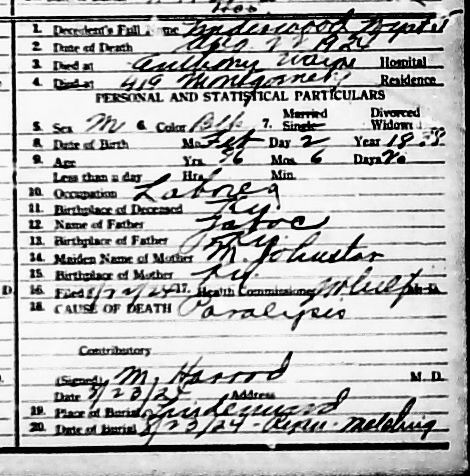 1. Decedent's Full Name Underwood
2. Date of Death Aug. 22 1924
3. Died at Anthony Wayne Hospital
4. Died at 419 Montgomery Residence
PERSONAL AND STATISTICAL PARTICULARS
5. Sex M 6. Color Blk 7. Married Single Divorced Widowed
8. Date of Birth Mo. Feb Day 2 Year 18
9. Age Yrs. 96 Mos. 6 Days 20
Less than a day Hrs. Min.
10. Occupation Laborer
11. Birthplace of Deceased Ky
12. Name of Father
13. Birthplace of Father Ky
14. Maiden Name of Mother M. Johnston
15. Birthplace of Mother Ky.
16. Filed 8/22/24 17. Health Commissioner M.D.
18. CAUSE OF DEATH Paralysis
Contributory
(Signed) M. Harrod M. D.
Date 8/23/24 Address
19. Place of Burial Lindenwood
20. Date of Burial 8/23/24